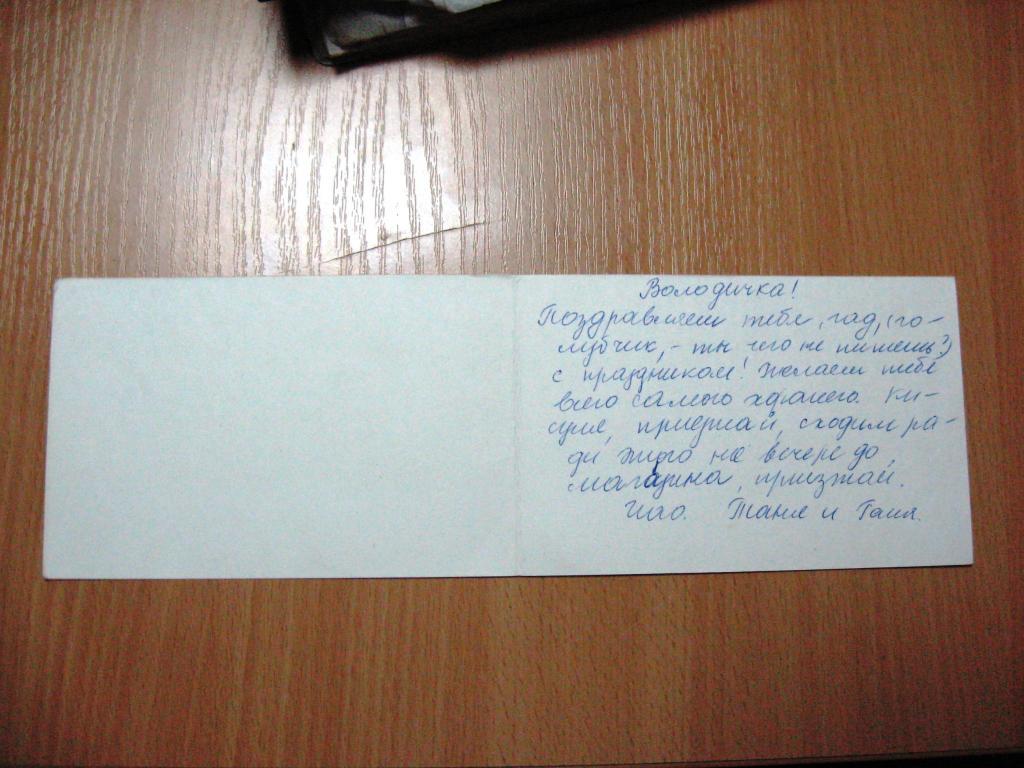 Володичка!
Поздравляем тебя, гад, (го-
лубчик, - ты чего не пишешь?)
с праздником! Желаем тебе
всего самого хорошего. Ки-
суля, приезжай, сходим ра-
ди этого на вечере до
магазина, приезжай.
Чао. Таня и Галя.